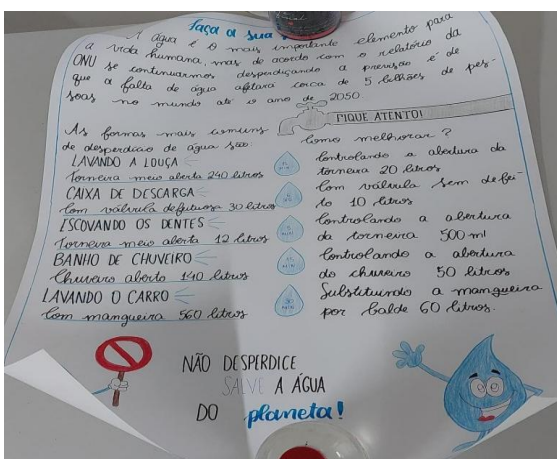 faça a sua
A água é o mais importante elemento para
a vida humana, mas de acordo com o relatório da
ONU se continuarmos desperdiçando a previsão é de
que a falta de água afetará cerca de 5 bilhões de pes-
soas no mundo até o ano de 2050
FIQUE ATENTO!
As formas mais comuns
de desperdício de água são
LAVANDO A LOUÇA
Torneira meio aberta 240 litros
CAIXA DE DESCARGA
Com válvula defeituosa 30 litros
ESCOVANDO OS DENTES
Torneira meio aberta 12 litros
BANHO DE CHUVEIRO
Chuveiro aberto 140 litros
LAVANDO O CARRO
Com mangueira 560 litros
15 MIN
5 MIN
15 MIN
30 MIN
Como melhorar?
Controlando a abertura da
torneira 20 litros
Com válvula sem defei-
to 10 litros
Controlando a abertura
da torneira 500 ml
Controlando a abertura
do chuveiro 50 litros
Substituindo a mangueira
por balde 60 litros.
NÃO DESPERDICE
SALVE A ÁGUA
DO planeta!